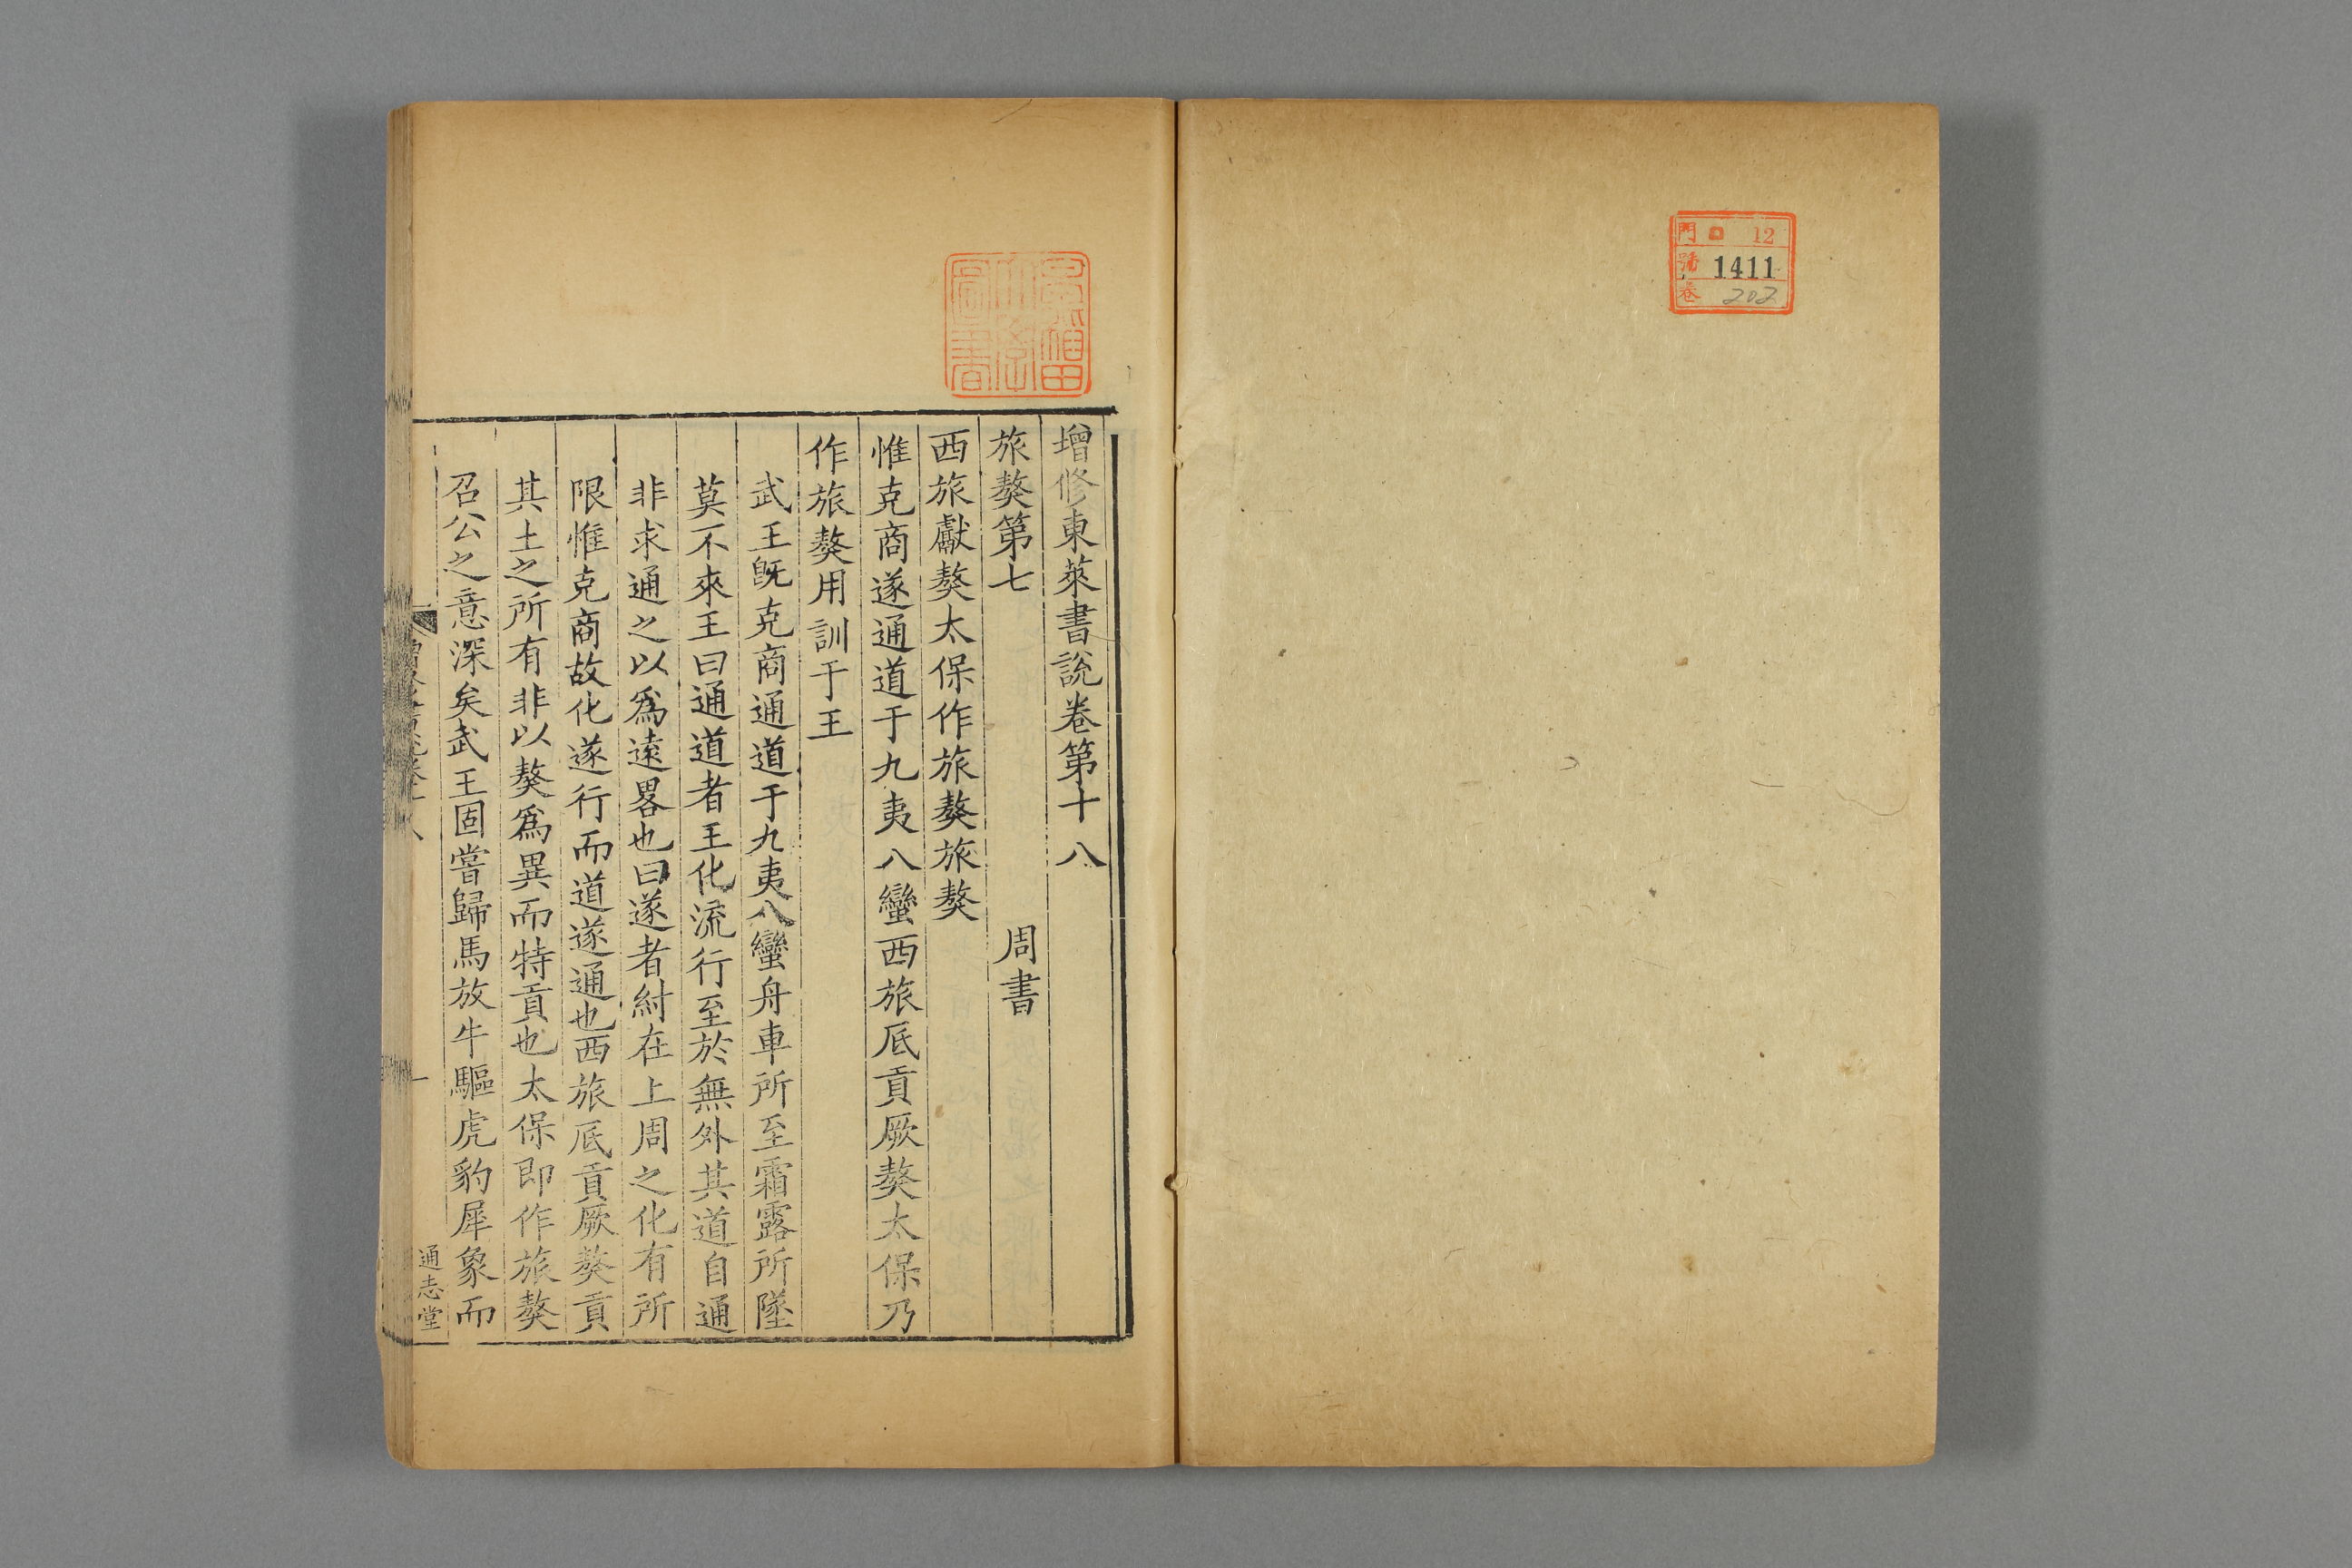 門 口 12
號 1411
卷 202
早稲田
大學
圖書
增修東萊書說卷第十八
旅獒第七 周書
西旅獻獒太保作旅獒旅獒
惟克商遂通道于九夷八蠻西旅厎貢厥獒太保乃
作旅獒用訓于王
武王旣克商通道于九夷八蠻舟車所至霜露所墜
莫不來王曰通道者王化流行至於無外其道自通
非求通之以爲遠畧也曰遂者紂在上周之化有所
限惟克商故化遂行而道遂通也西旅厎貢厥獒貢
其土之所有非以獒爲異而特貢也太保即作旅獒
召公之意深矣武王固嘗歸馬放牛驅虎豹犀象而
一
通志堂